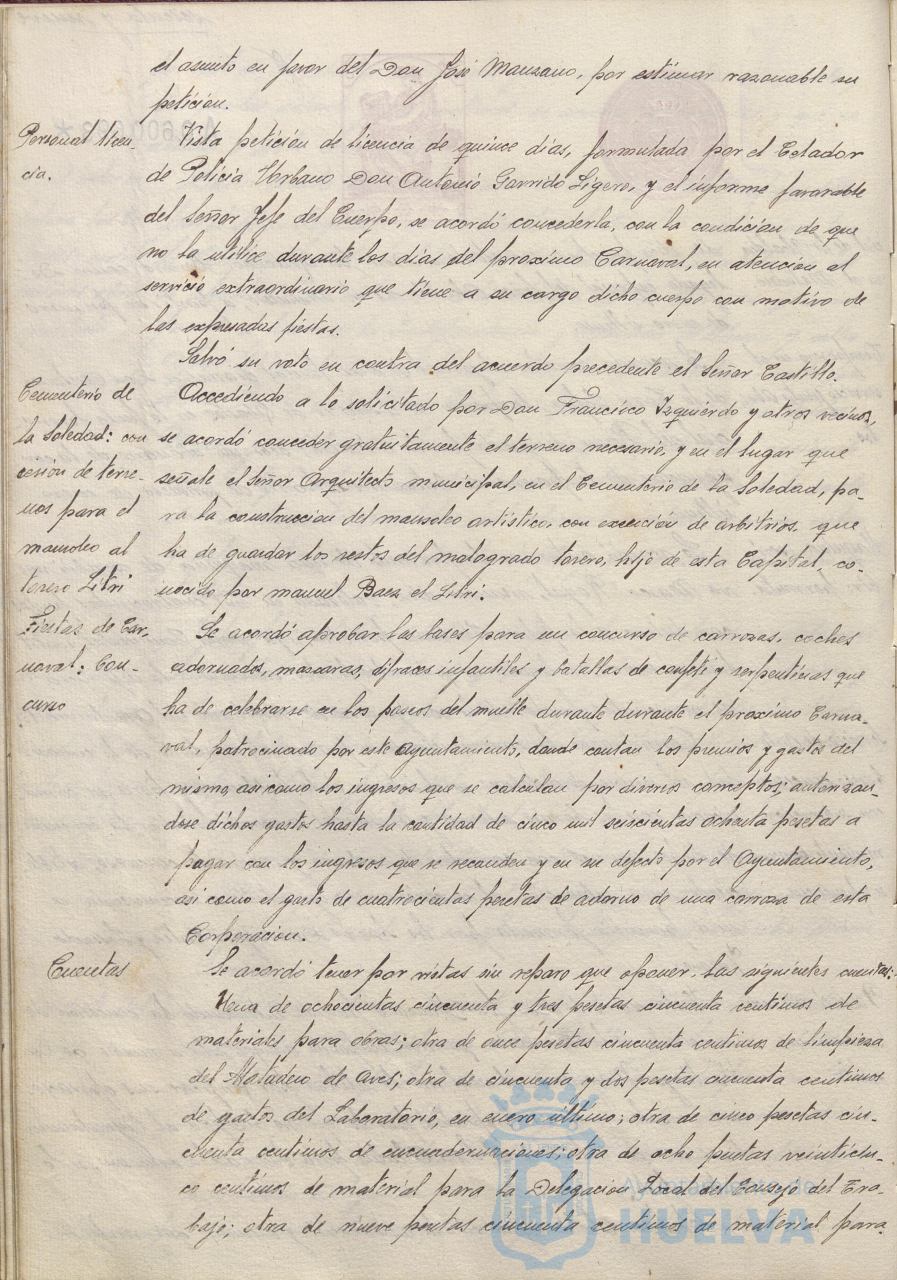 el asunto en favor del Don José Manzano, por estimar razonable su
petición.
Personal licen-
cia.
Vista petición de licencia de quince dias, formulada por el Celador
de Policia Urbano Don Antonio Garrido Ligero, y el informe favorable
del Señor Jefe del Cuerpo, se acordó concederla, con la condición de que
no la utilice durante los dias del proximo Carnaval, en atencion al
servicio extraordinario que tiene a su cargo dicho cuerpo con motivo de
las expresadas fiestas.
Salvó su voto en contra del acuerdo precedente el Señor Castillo.
Cementerio de
la Soledad: con
cesión de terre-
nos para el
mausoleo al
torero Litri
Accediendo a lo solicitado por Don Francisco Izquierdo y otros vecinos,
se acordó conceder gratuitamente el terreno necesario, y en el lugar que
señale el Señor Arquitecto municipal, en el Cementerio de la Soledad, pa-
ra la construccion del mausoleo artistico, con exención de arbitrios, que
ha de guardar los restos del malogrado torero, hijo de esta Capital, co-
nocido por Manuel Baez el Litri.
Fiestas de Car-
naval: Con-
curso
Se acordó aprobar las bases para un concurso de carrozas, coches
adornados, mascaras, difraces infantiles y batallas de confeti y serpentinas que
ha de celebrarse en los paseos del muelle durante durante el proximo Carna-
val, patrocinado por este Ayuntamiento, donde contan los premios y gastos del
mismo, asi como los ingresos que se calculan por diversos conceptos; autorizan-
dose dichos gastos hasta la cantidad de cinco mil seiscientas ochenta pesetas a
pagar con los ingresos que se recauden y en su defecto por el Ayuntamiento,
asi como el gasto de cuatrocientas pesetas de adorno de una carroza de esta
Corporacion.
Cuentas
Se acordó tener por vistas sin reparo que oponer, las siguientes cuentas:
Una de ochocientas cincuenta y tres pesetas cincuenta centimos de
materiales para obras; otra de once pesetas cincuenta centimos de limpieza
del Matadero de Aves; otra de cincuenta y dos pesetas cincuenta centimos
de gastos del Laboratorio, en enero último; otra de cinco pesetas cin-
cuenta centimos de encuadernaciones; otra de ocho pesetas veinticin-
co centimos de material para la Delegacion Local del Consejo del Tra-
bajo; otra de nueve pesetas cincuenta centimos de material para
HUELVA